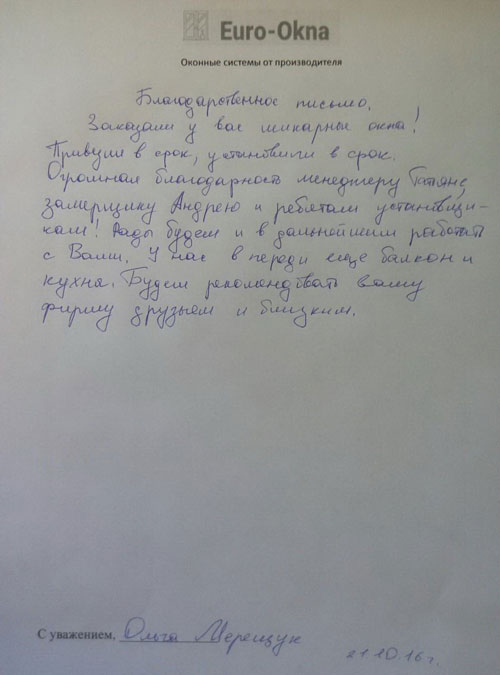 Euro-Okna
Оконные системы от производителя
Благодарственное письмо.
Заказали у вас шикарные окна!
Привезли в срок, установили в срок.
Огромная благодарность менеджеру Татьяне,
замерщику Андрею и ребятам установщи-
кам! Рады будем и в дальнейшем работать
с Вами. У нас в переди еще балкон и
кухня. Будем рекомендовать вашу
фирму друзьям и близким.
С уважением, Ольга Мерещук
21.10.16г.